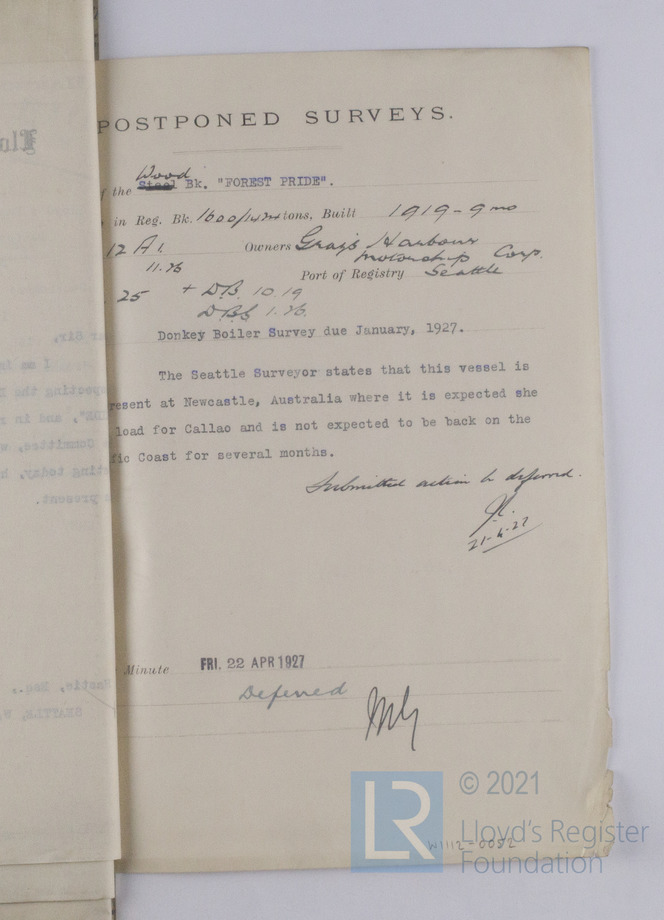 POSTPONED SURVEYS.
Wood
f the Steel Bk. "FOREST PRIDE".
in Reg. Bk. 1600/1472 tons, Built 1919-9mo
12 A1. Owners Grays Harbour
Motorship Corp.
11.26 Port of Registry Seattle
25 + D.B. 10.19
DBS 1.26.
Donkey Boiler Survey due January, 1927.
The Seattle Surveyor states that this vessel is
resent at Newcastle, Australia where it is expected she
load for Callao and is not expected to be back on the
fic Coast for several months.
Submitted action be deferred.
21-4-27
Minute FRI. 22 APR 1927
Deferred
© 2021
LR
Lloyd's Register
Foundation
W1112-0052